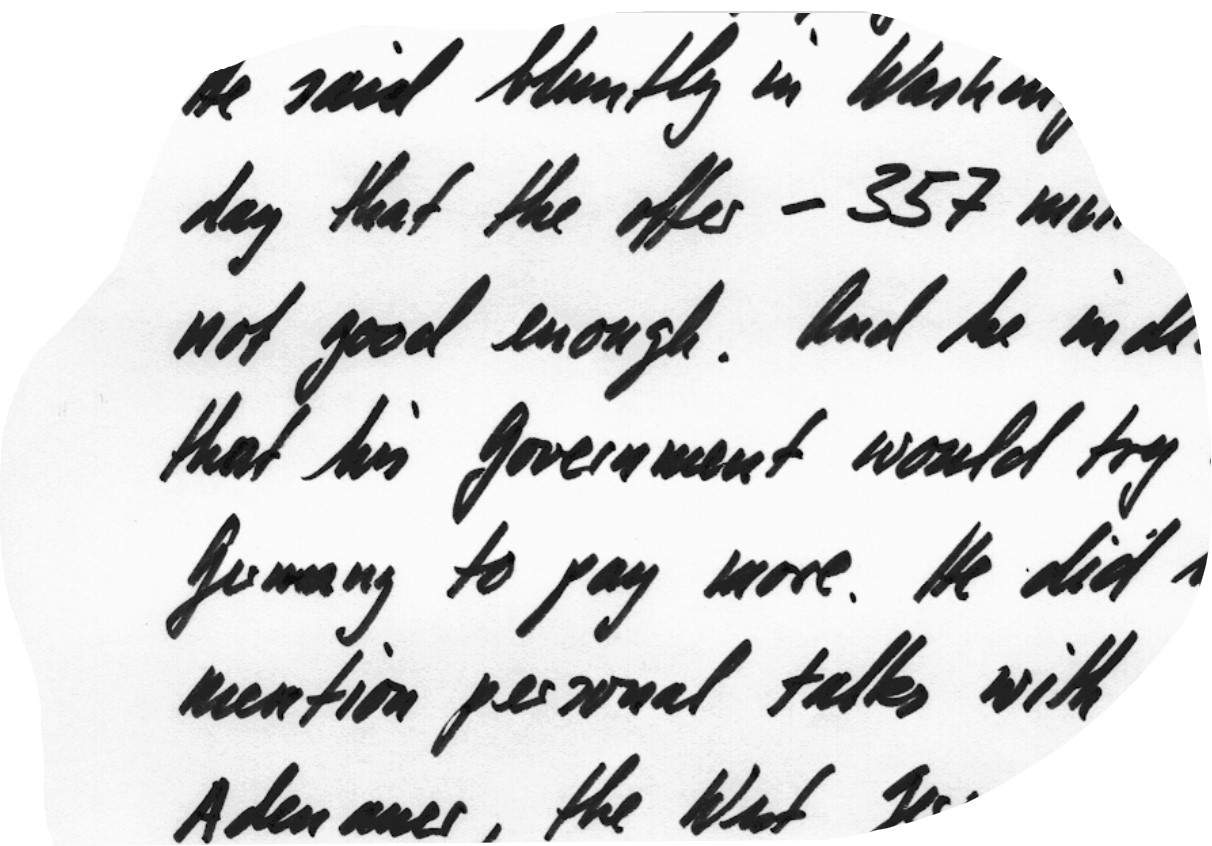 He said bluntly in
day that the offer - 357
not good enough. And he
that his Government would try
Germany to pay more. He did
mention personal talks with
Adenauer, the West